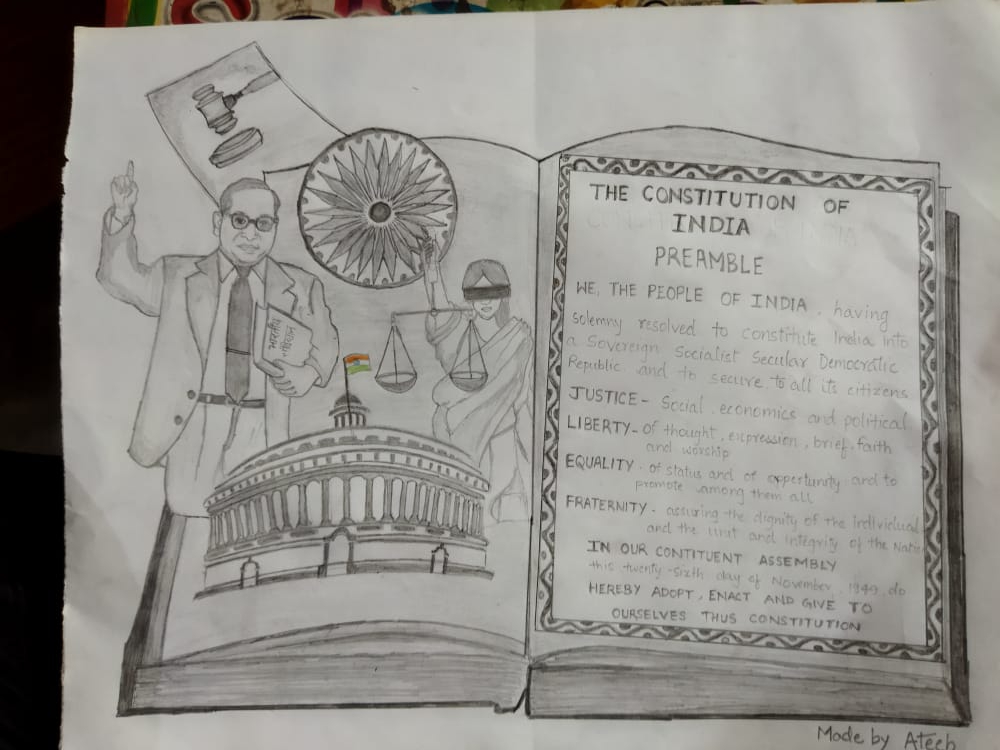 THE CONSTITUTION OF
INDIA
PREAMBLE
WE, THE PEOPLE OF INDIA, having
solemny resolved to constitute India into
a Sovereign Socialist Secular Democratic
Republic and to secure to all its citizens
JUSTICE - Social, economics and political
LIBERTY - of thought, expression, brief, faith
and worship
EQUALITY - of status and of opportunity and to
promote among them all
FRATERNITY - assuring the dignity of the individual
and the unit and integrity of the Nation
IN OUR CONTITUENT ASSEMBLY
this twenty-sixth day of November, 1949, do
HEREBY ADOPT, ENACT AND GIVE TO
OURSELVES THUS CONSTITUTION
Made by